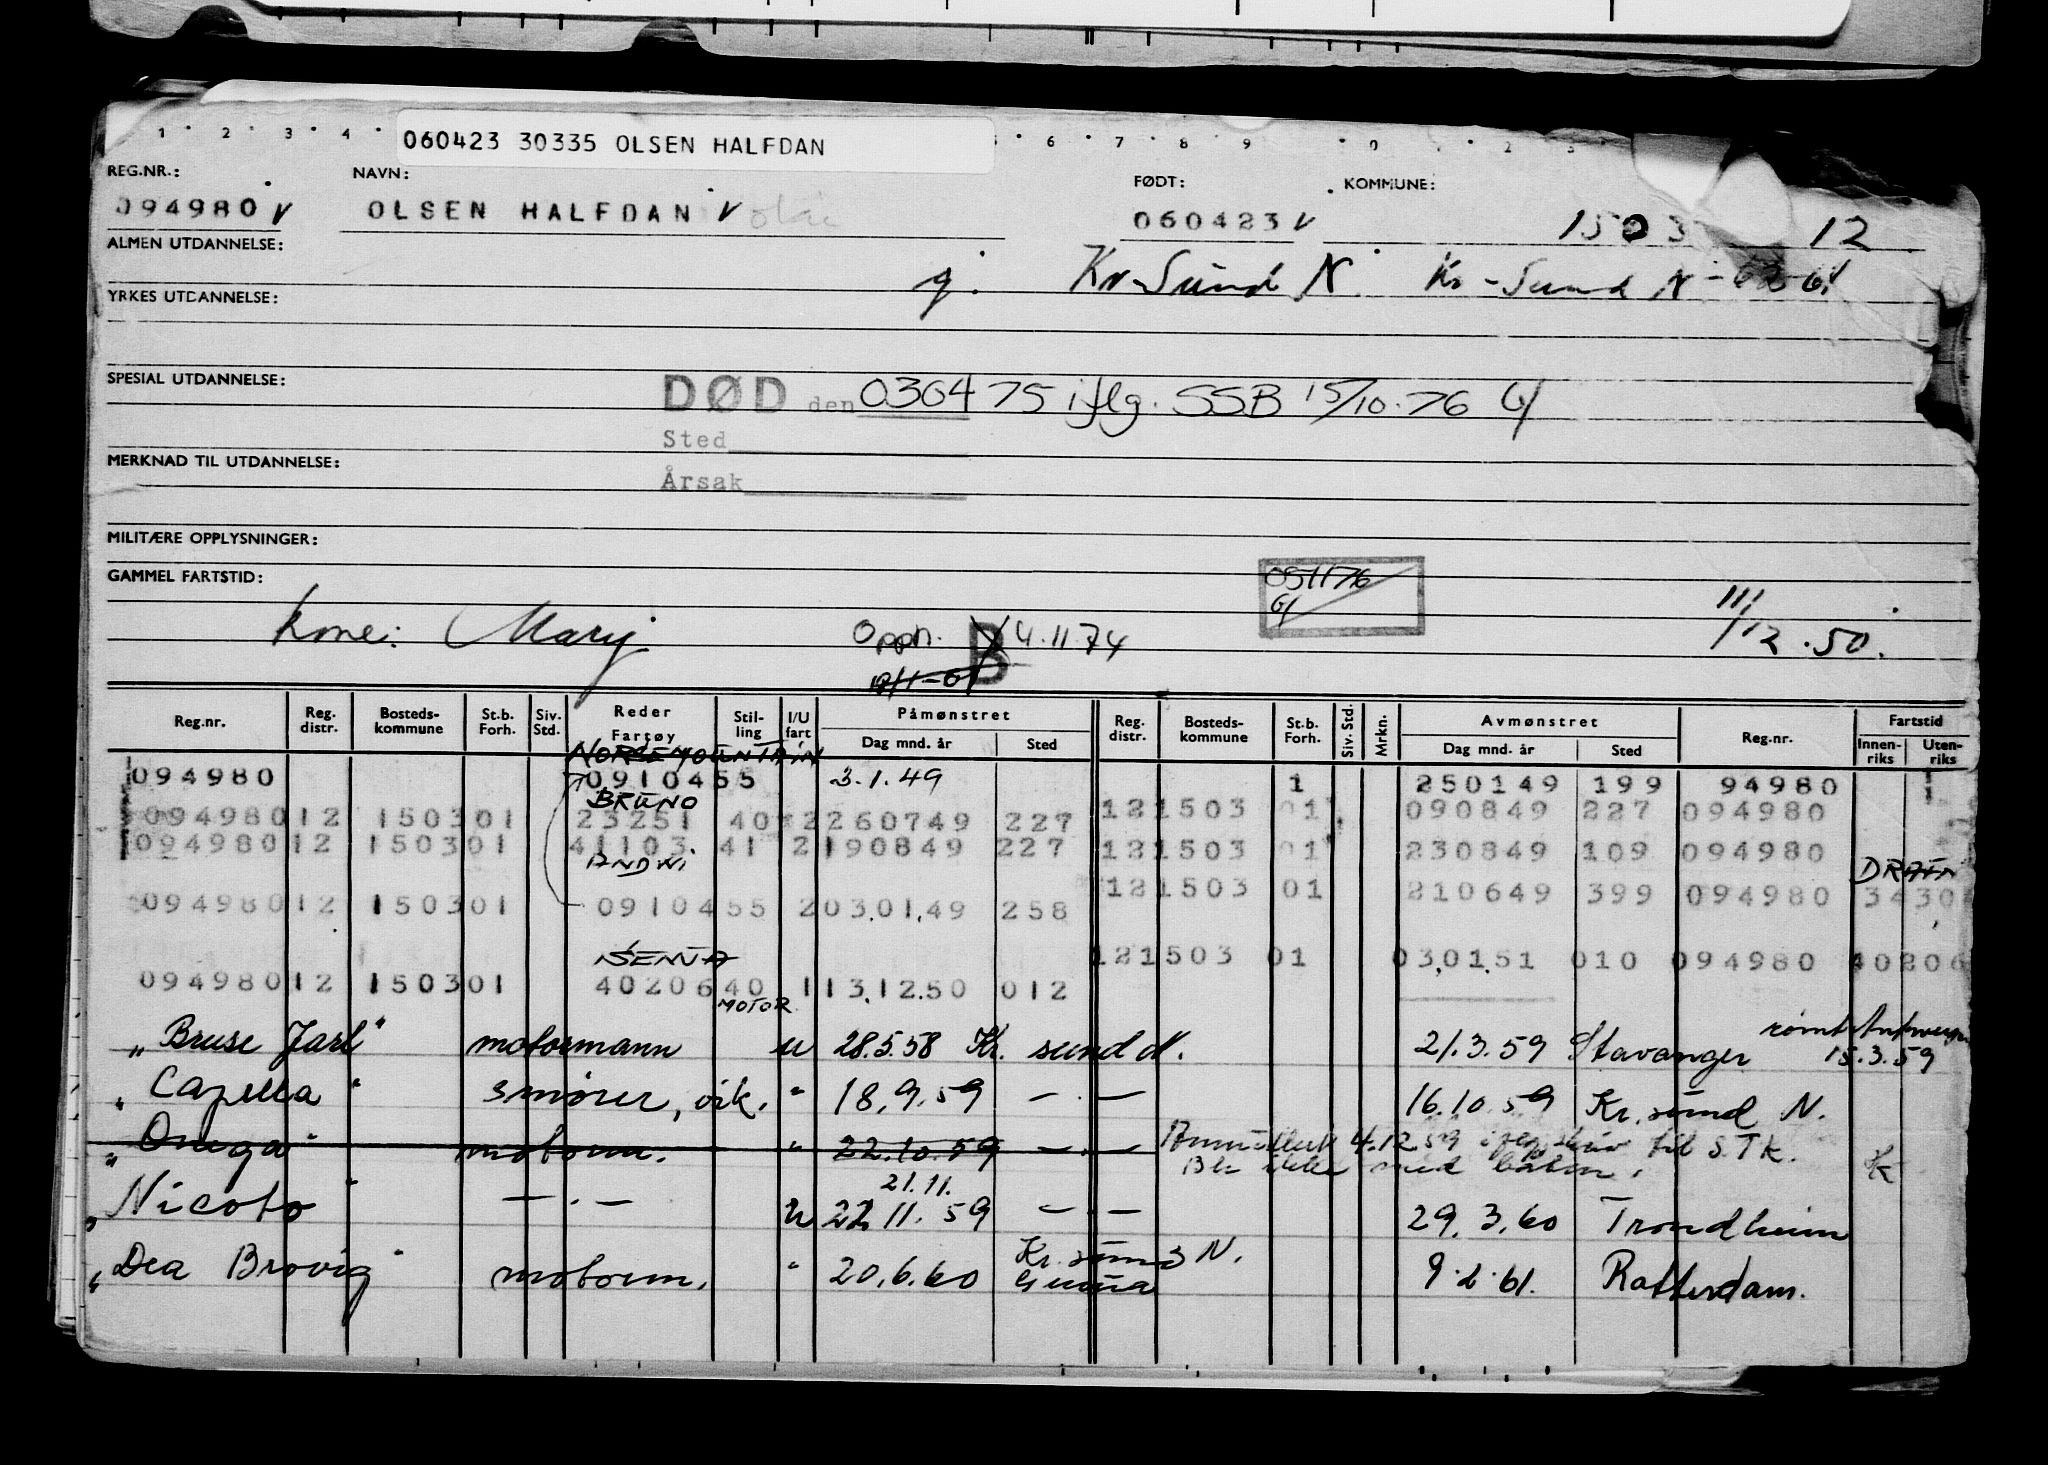 1 2 3 4 6 7 8 9 0 2 3
060423 30335 OLSEN HALFDAN
REG.NR.: NAVN: FØDT: KOMMUNE:
094980 V OLSEN HALFDAN V 060423 V 1503 12
ALMEN UTDANNELSE:
g. Kr-Sund N. Kr-Sund N
YRKES UTDANNELSE:
SPESIAL UTDANNELSE:
DØD den 030475 iflg. SSB 15/10-76
Sted
MERKNAD TIL UTDANNELSE:
Årsak
MILITÆRE OPPLYSNINGER:
GAMMEL FARTSTID:
051176
kone: Mary Opph. B 4.11.74 1/12.50.
Reg.nr. Reg. distr. Bosteds-kommune St.b. Forh. Siv. Std. Reder Fartøy Stil-ling I/U fart Påmønstret Dag mnd. år Sted Reg. distr. Bosteds-kommune St.b. Forh. Siv. Std. Mrkn. Avmønstret Dag mnd. år Sted Reg.nr. Fartstid Innen-riks Uten-riks
NORSE MOUNTAIN
094980 0910455 3.1.49 1 250149 199 94980 1
BRUNO
094980 12 1503 01 23251 40 2 260749 227 12 1503 01 090849 227 094980
094980 12 1503 01 41103 41 2 190849 227 12 1503 01 230849 109 094980
ANDWI
094980 12 1503 01 0910455 2 03.01.49 258 12 1503 01 210649 399 094980 3430
SENJA
094980 12 1503 01 40206 40 1 13.12.50 012 12 1503 01 03.01.51 010 094980 40206
MOTOR
"Bruse Jarl" motormann u 28.5.58 Kr. sund N. 21.3.59 Stavanger rømt Antwerpen 15.3.59
"Capella" smører, vik. " 18.9.59 — . — 16.10.59 Kr.sund N.
"Omega" motorm. " 22.10.59 — . — Annullert 4.12.59 iflg. skriv til STK.
Ble ikke med båten.
21.11.
"Nicoto" — . — u 22.11.59 — . — 29.3.60 Trondheim
"Dea Brovig" motorm. " 20.6.60 Kr.sund N. 9.2.61. Rotterdam.